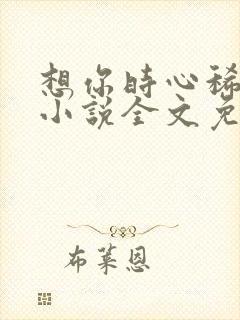 想你时心稀
小说全文免
布莱恩